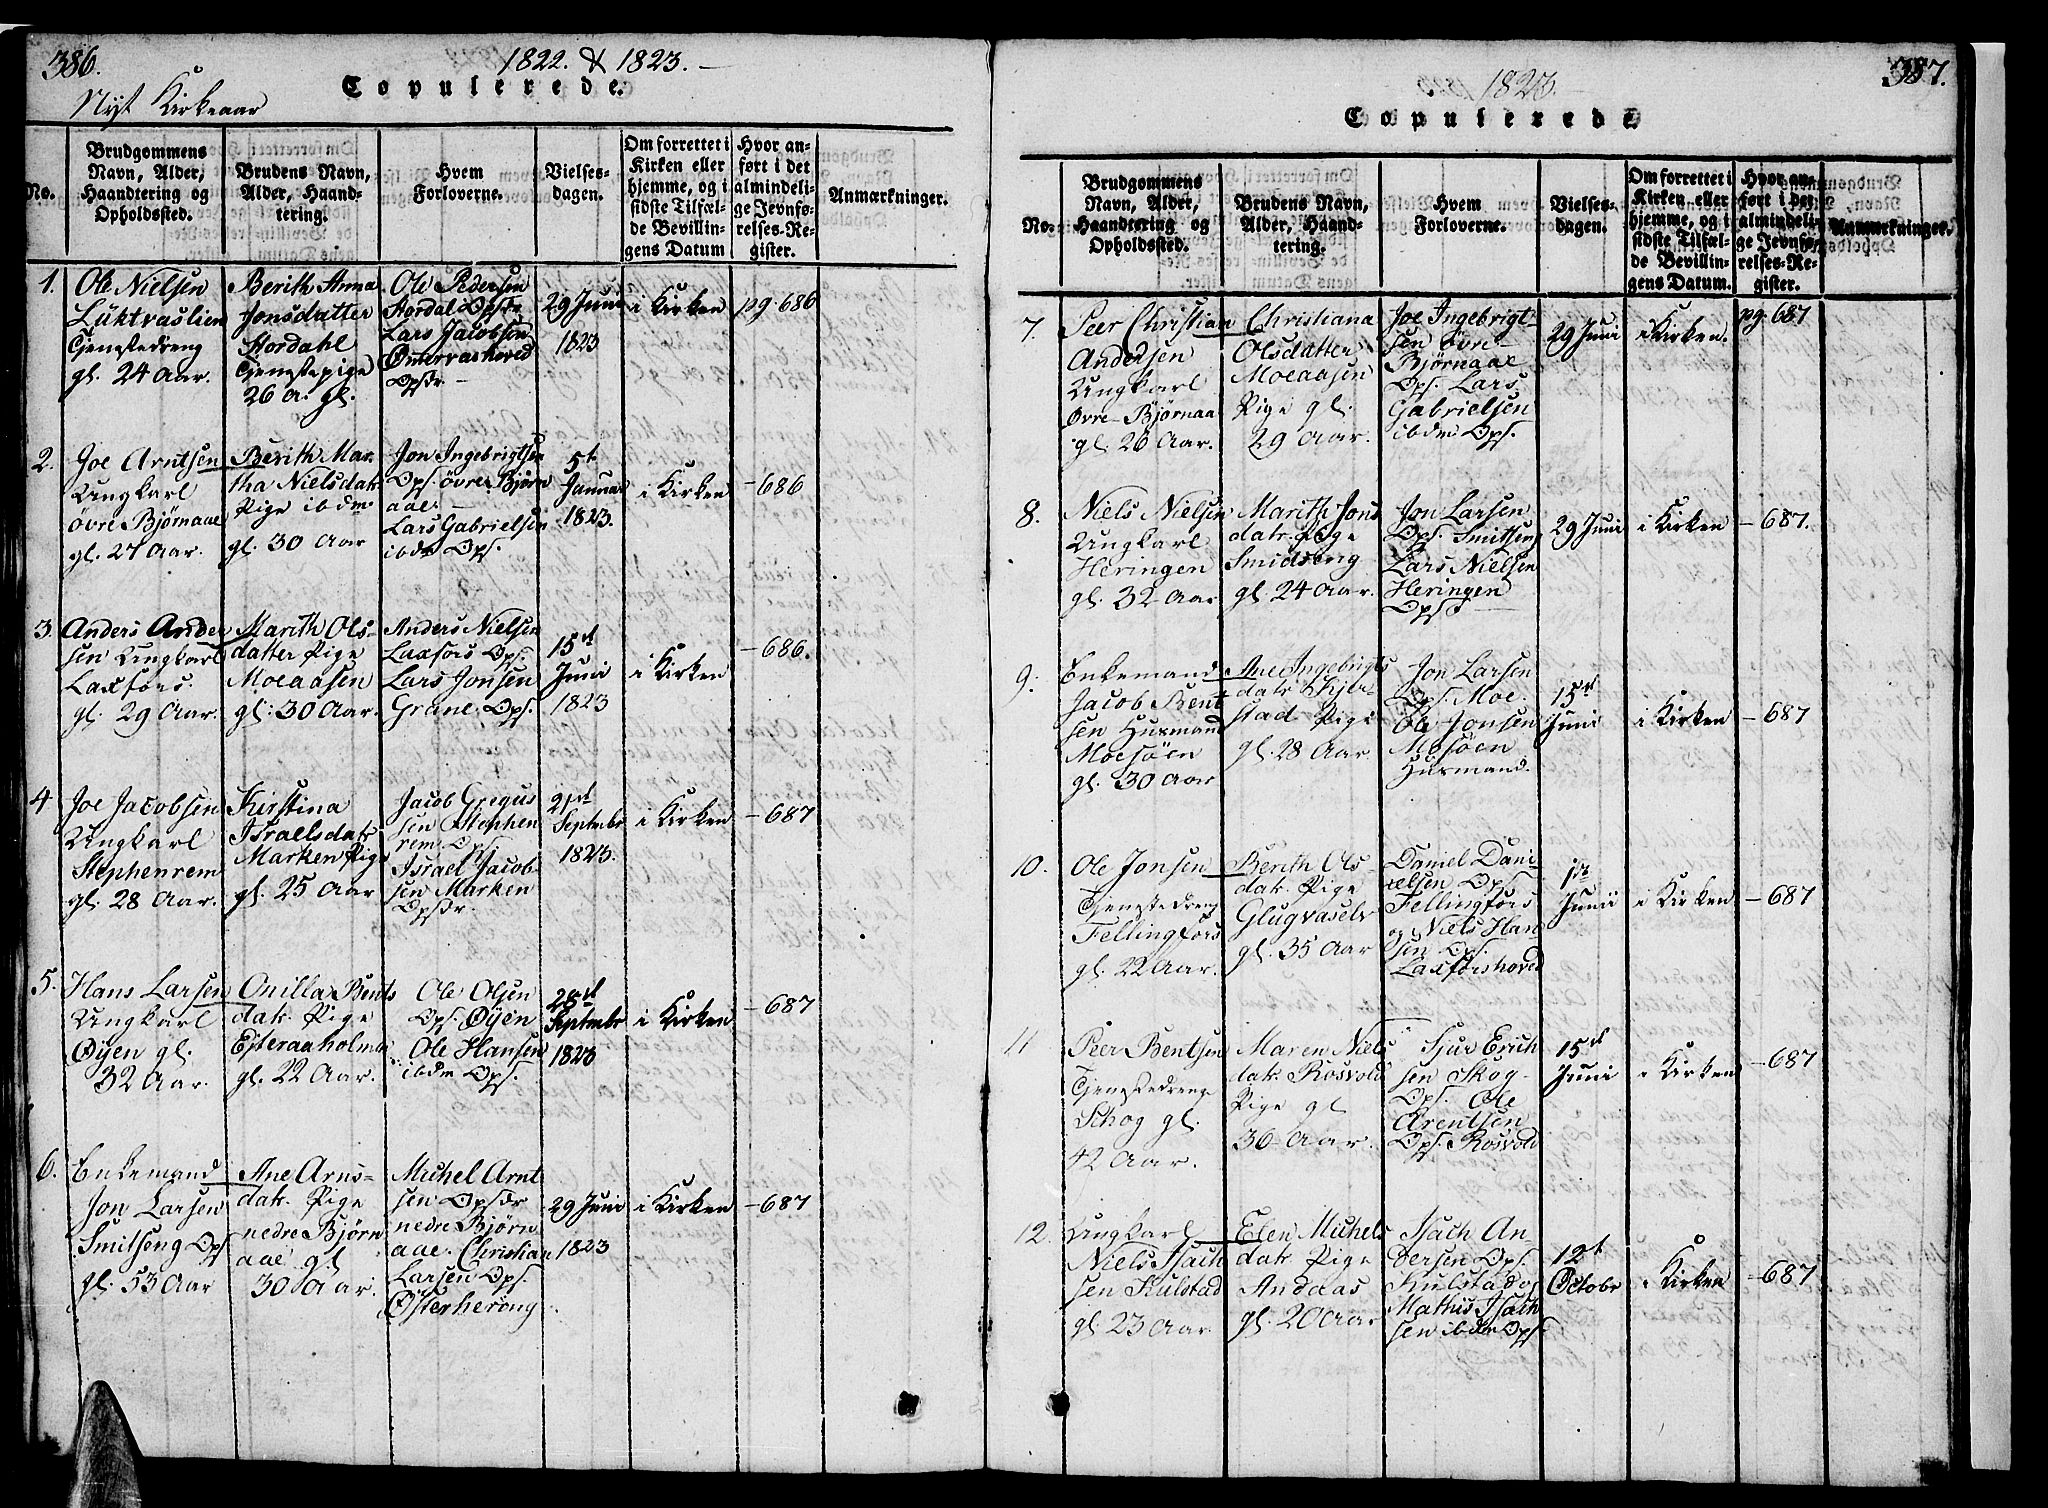 386.
1822. & 1823.
Copulerede.
Nyt Kirkeaar
No.
Brudgommens
Navn, Alder,
Haandtering og
Opholdssted.
Brudens Navn,
Alder, Haand-
tering.
Hvem
Forloverne.
Vielses-
dagen.
Om forrettet i
Kirken eller
hjemme, og i
sidste Tilfæl-
de Bevillin-
gens Datum
Hvor an-
ført i det
almindeli-
ge Jevnfø-
relses-Re-
gister.
Anmærkninger.
1.
Ole Nielsen
Tjenestedreng
gl. 24 Aar.
Berith Anna
Jonsdatter
Stordahl
Tjenestepige
26 a. gl.
Ole Pedersen
Stordal Opsdr
Lars Jacobsen
Opsdr.
29 Juni
1823
i Kirken
pg 686
2.
Joe Arntsen
Ungkarl
övre Björnaae
gl. 27 Aar.
Berith Mar
tha Nielsdatr
Pige ibdm
gl. 30 Aar
Jon Ingebrigtsen
Ops. övre Björn
aae.
Lars Gabrielsen
ibdm Ops.
5t
Januar
1823.
i Kirken
-686
3.
Anders Ander
sen Ungkarl
Laxfors.
gl. 29 Aar.
Marith Ols-
datter Pige
Moeaasen
gl. 30 Aar.
Anders Nielsen
Laxfors Ops.
Lars Jonsen
Grane Ops.
15de
Juni
1823
i Kirken
-686.
4
Joe Jacobsen
Ungkarl
Stephenrem
gl. 28 Aar.
Kirstina
Israelsdatr
Marken Pige
gl. 25 Aar
Jacob Gregus
sen Stephen
rem Ops
Israel Jacob-
sen Marken
Opsdr.
21de
Septembr
1823.
i Kirken
-687
5.
Hans Larsen
Ungkarl
Øÿen gl.
32 Aar.
Onilla Bents
datr. Pige
Efteraaholmen
gl. 22 Aar.
Ole Olsen
Ops. Øÿen
Ole Hansen
ibdm Ops.
28de
Septembr
1823
i Kirken
-687
6.
Enkemand
Jon Larsen
Smitseng Ops
gl. 53 Aar
Ane Arns-
datr. Pige
nedre Bjørn
aae gl.
30 Aar.
Michel Arnt
sen Opsdr
nedre Bjørn
aae. Christian
Larsen Ops.
Østerherøng
29 Juni
1823
i Kirken
-687
387.
1823.
Copulerede
No.
Brudgommens
Navn, Alder,
Haandtering og
Opholdssted.
Brudens Navn,
Alder, Haand-
tering.
Hvem
Forloverne.
Vielses-
dagen.
Om forrettet i
Kirken eller
hjemme, og i
sidste Tilfæl-
de Bevillin-
gens Datum.
Hvor an-
ført i det
almindeli-
ge Jevnfø-
relses-Re-
gister.
Anmærkninger.
7.
Peer Christian
Andersen
Ungkarl
Øvre Björnaa
gl. 26 Aar.
Christiana
Olsdatter
Moeaasen
Pige gl.
29 Aar.
Joe Ingebrigt-
sen övre
Björnaae
Ops. Lars
Gabrielsen
ibdm Ops.
29 Juni
i Kirken.
pg. 687
8.
Niels Nielsen
Ungkarl
Heringen
gl. 32 Aar
Marith Jons
datr. Pige
Smidseng
gl 24 Aar.
Jon Larsen
Ops. Smitseng
Lars Nielsen
Heringen
Opsd
29 Juni
i Kirken
-687.
9.
Enkemand
Jacob Bent
sen Husmand
Moesøen
gl. 30 Aar
Ane Ingebrigts
datr.
stad Pige
gl. 28 Aar
Jon Larsen
Ops. Moe.
Ole Jonsen
Mosøen
Husmand.
15de
Juni
i Kirken
-687
10.
Ole Jonsen
Tjenestedreng
Fellingfors
gl. 22 Aar.
Berith Ols
datr. Pige
Glugvaselv
gl. 35 Aar
Daniel Dani
elsen Ops.
Fellingfors
og Niels Han
sen Ops.
Laxforshoved
Junii
i Kirken
-687
11
Peer Bentsen
Tjenestedreng
Schog gl.
42 Aar.
Maren Niels
datr. Rosvold
Pige gl
36 Aar.
Sjur Erich
sen Skog-
Ops. Ole
Arentsen
Ops. Rosvold
15de
Juni
i Kirken
-687
12.
Ungkarl
Niels Isach
sen Kulstad
gl. 23 Aar.
Elen Michels
datr. Pige
Andaas
gl. 20 Aar
Isach An
dersen Ops.
Kulstad og
Mathis Isach
sen ibdm Ops.
12t
Octobr
i Kirken
-687